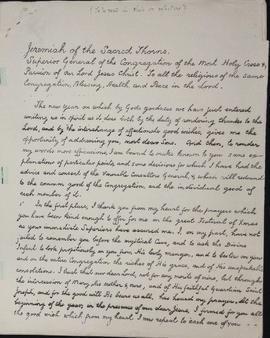 Jeremiah of the Sacred Thorns,
Superior General of the Congregation of the Most Holy Cross &
Passion of our Lord Jesus Christ. To all the religious of the same
Congregation, Blessing, Health, and Peace in the Lord.
The New Year on which by God's goodness we have just entered
inviting us in spirit as is due by the duty of rendering thanks to the
Lord, and by the interchange of affectionate good wishes, gives me the
opportunity of addressing you, most dear Sons. And then, to render
my words more efficacious, I am to make known to you some ex-
planations of particular points, and some decisions for which I have had the
advice and consent of the Venerable Consultors General, & which will redound
to the common good of the Congregation, and the individual good of
each member of it.
In the first place, I thank you from my heart for the prayers which
you have been kind enough to offer for me on the great Festival of Xmas
as your immediate Superiors have assured me. I, on my part, have not
failed to remember you before the mystical Cave, and to ask the Divine
Infant to look propitiously on you from His lowly manger, and to bestow on you
and on the entire Congregation the riches of His grace, and of His unspeakable
consolations. I trust that our dear Lord, not for any merits of mine, but through
the intercession of Mary, His mother & mine, and of His faithful guardian, Saint
Joseph, and for the good will He bears us all, has heard my prayer. At this
beginning of the year, in the presence of our dear Jesus, I formed for you all
the good wish which from my heart I now repeat to each one of you